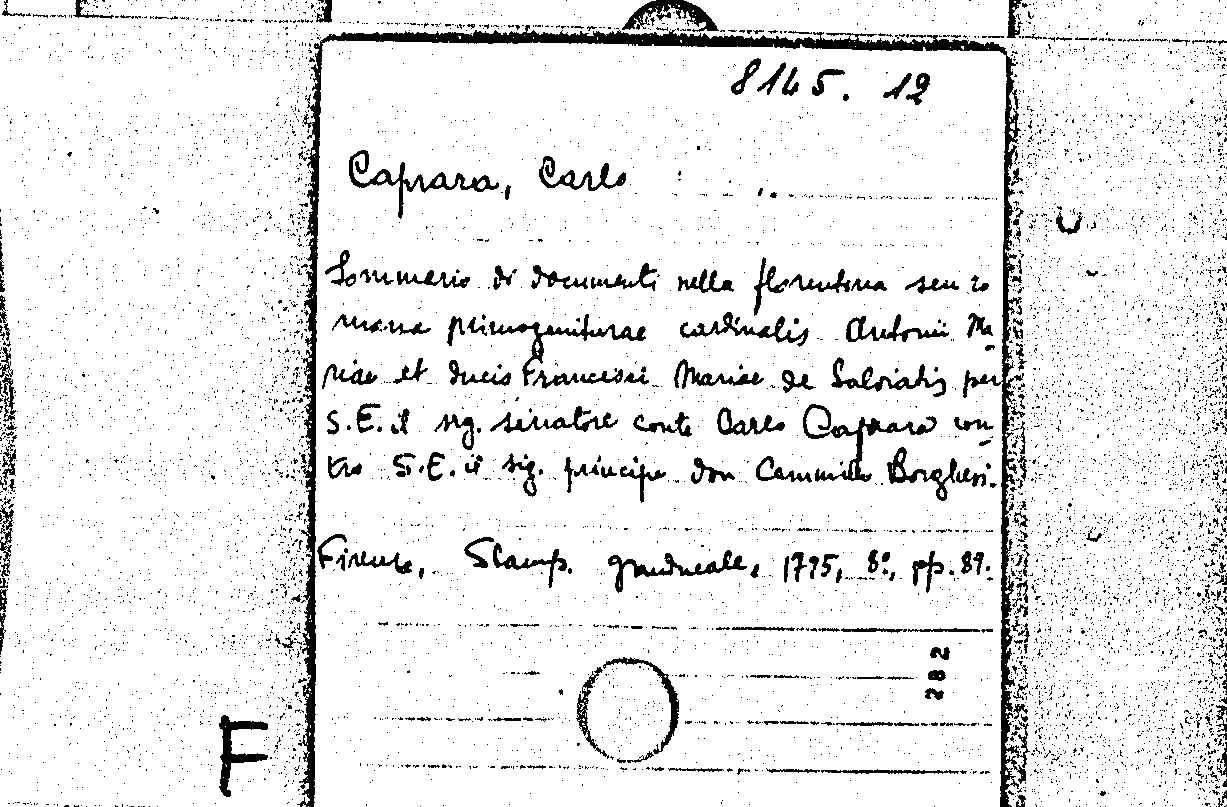 8145. 12
Caprara, Carlo
Sommario di documenti nella florentina seu ro
mana primogeniturae cardinalis Antonii Ma
riae et ducis Francisci Mariae de Salviatis per
S.E. il sig. senatore conte Carlo Caprara con
tro S.E. il sig. principe don Cammillo Borghesi.
Firenze, Stamp. granducale, 1795, 8º, pp. 89.
282
F